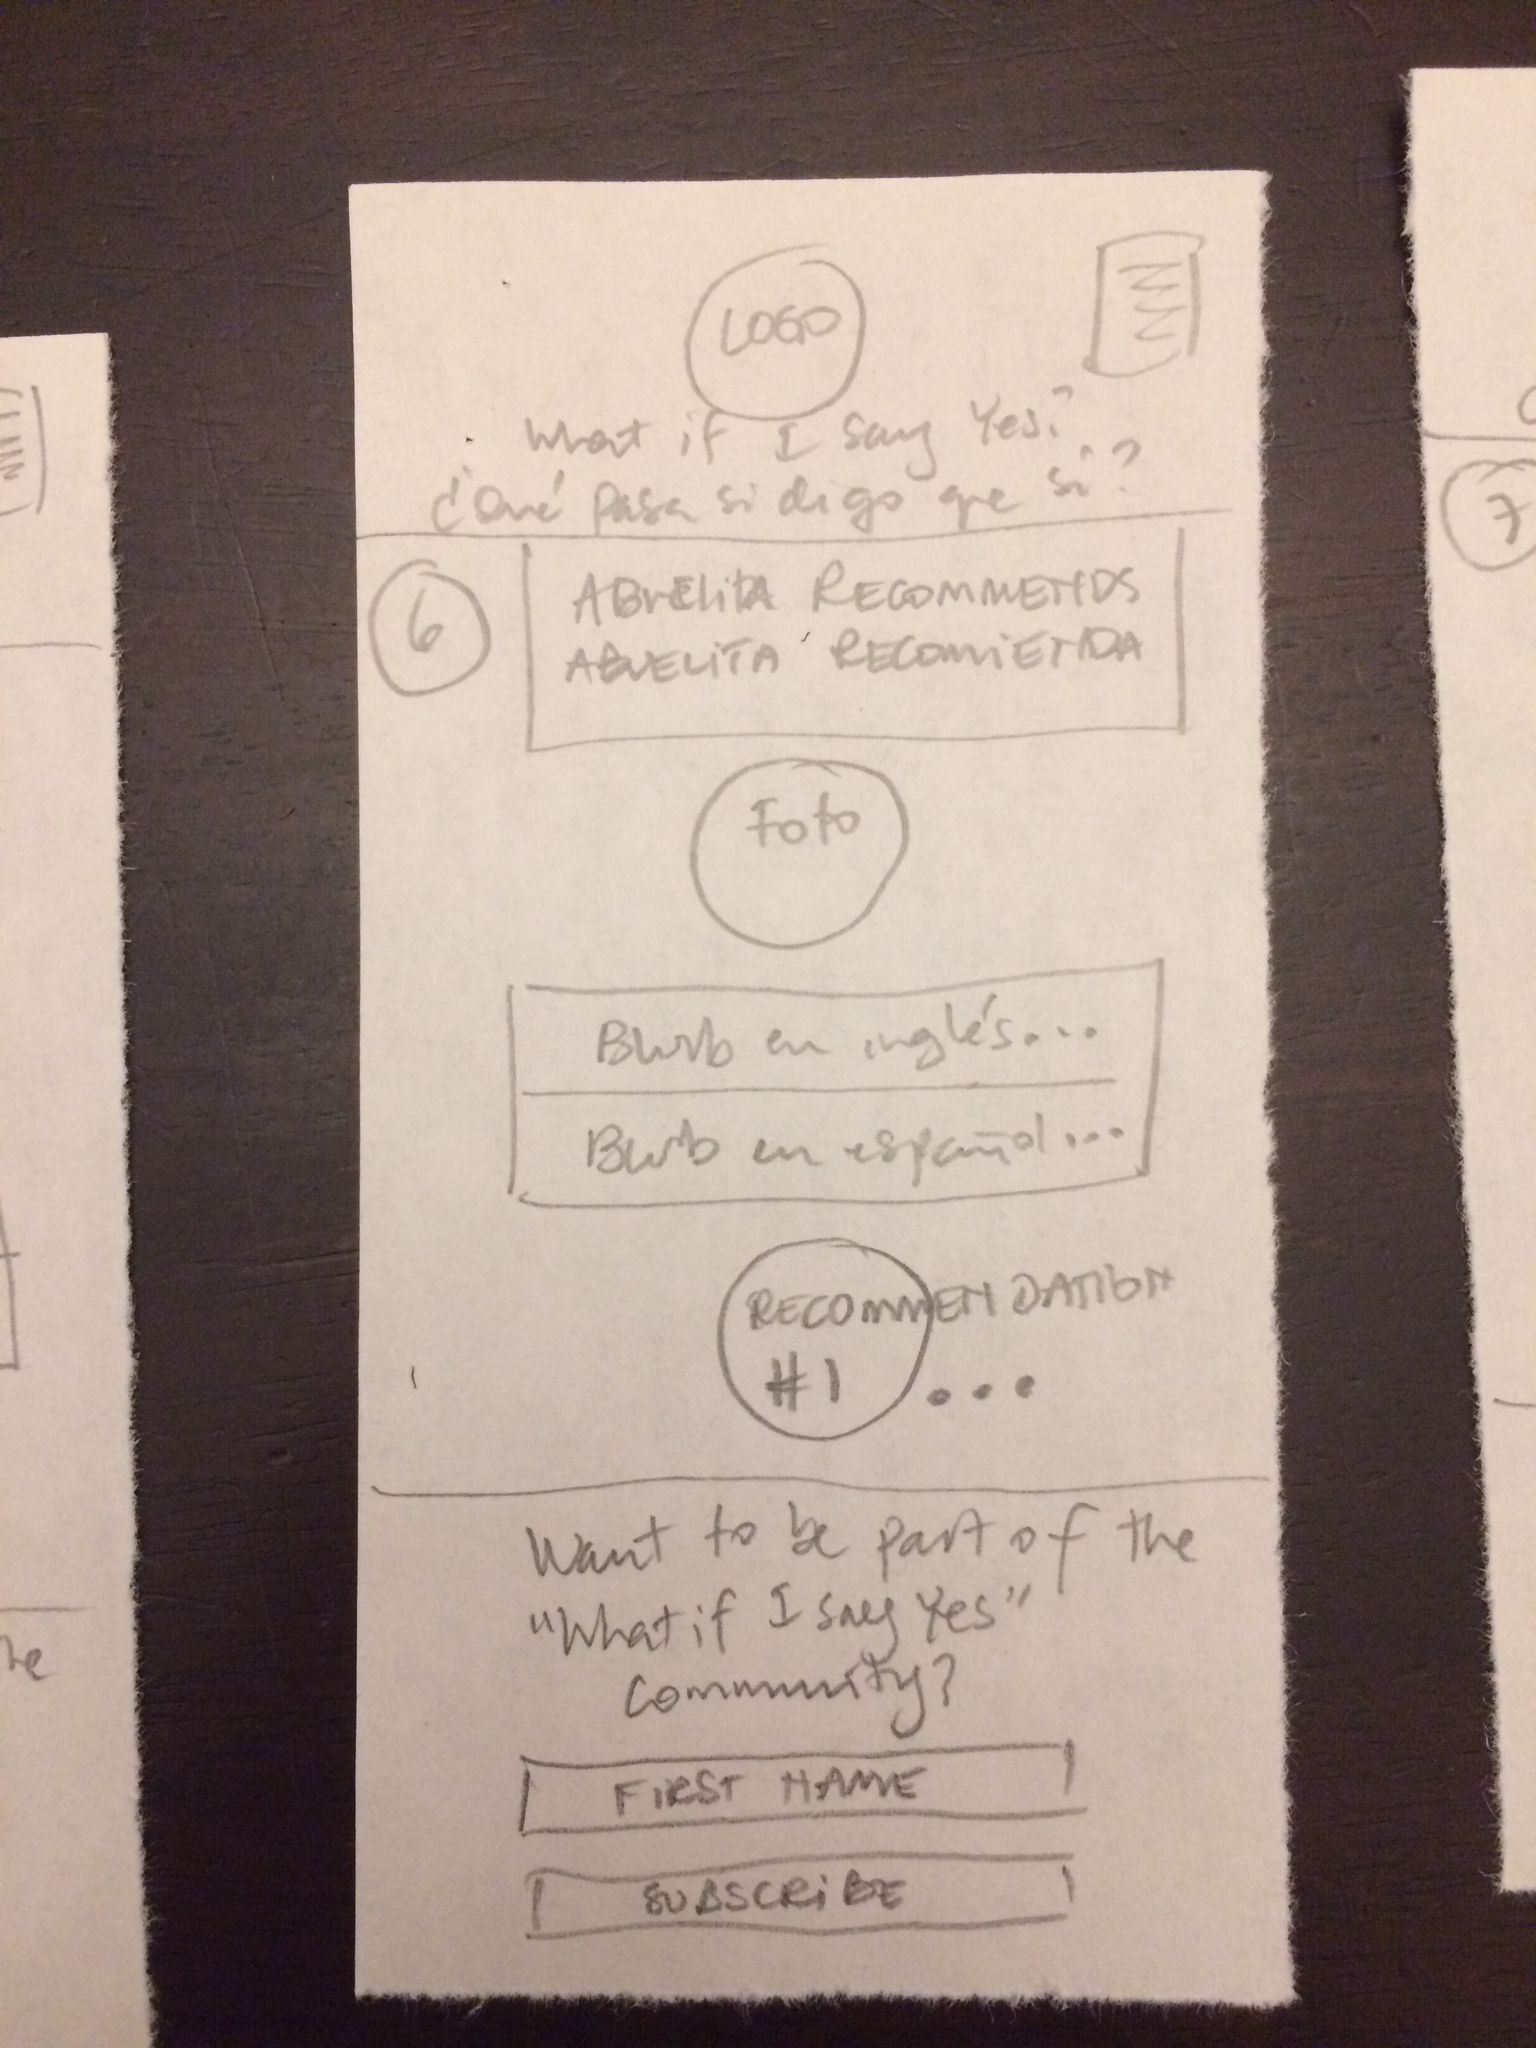 LOGO
What if I say Yes?
¿Qué pasa si digo que sí?
6
ABUELITA RECOMMENDS
ABUELITA RECOMIENDA
Foto
Blurb en inglés...
Blurb en español...
RECOMMENDATION
#1 ...
Want to be part of the
"What if I say Yes"
Community?
FIRST NAME
SUBSCRIBE
he
7